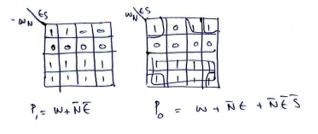 WN ES
1 1 0 0
0 0 0 0
1 1 1 1
1 1 1 1
P₁ = W + N̄Ē
WN ES
1 0 1 1
0 0 0 0
1 1 1 1
1 1 1 1
P₀ = W + N̄E + N̄ĒS̄